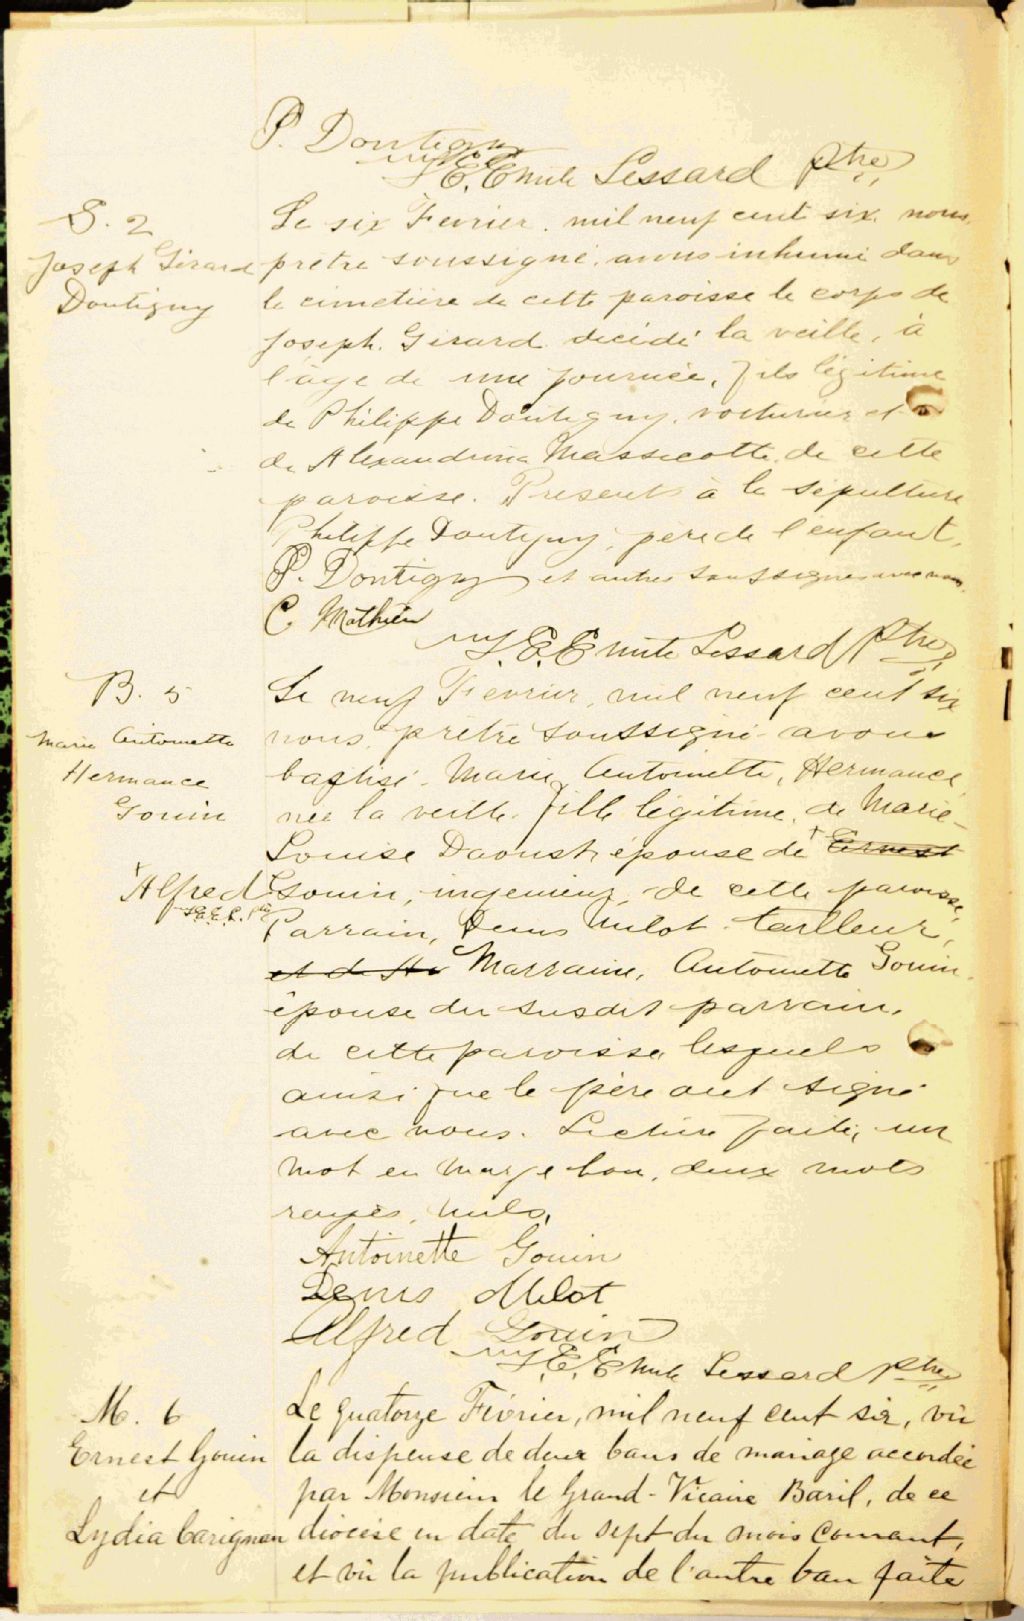 P. Dontigny
J. E. Emile Lessard Ptre
S. 2
Joseph Gérard
Dontigny
Le six Fevrier, mil neuf cent six, nous,
prêtre soussigné, avons inhumé dans
le cimetière de cette paroisse le corps de
Joseph. Gérard décédé la veille, à
l'âge de une journée, fils légitime
de Philippe Dontigny, voiturier et
de Alexandrina Massicotte, de cette
paroisse. Présents à la sépulture
Philippe Dontigny, père de l'enfant,
P. Dontigny et autres soussignés avec nous.
C. Mathieu
J. E. Emile Lessard Ptre
B. 5
Marie Antoinette
Hermance
Gouin
Le neuf Fevrier, mil neuf cent six
nous, prêtre soussigné avons
baptisé Marie, Antoinette, Hermance,
née la veille. fille légitime, de Marie-
Louise Daoust, épouse de + Ernest
+ Alfred
Gouin, ingénieur, de cette paroisse,
Parrain, Denis Milot, tailleur,
et de Marraine, Antoinette Gouin,
épouse du susdit parrain,
de cette paroisse, lesquels
ainsi que le père ont signé
avec nous. Lecture faite, un
mot en marge bon, deux mots
rayés, nuls,
Antoinette Gouin
Denis Milot
Alfred Gouin
J. E. Emile Lessard Ptre
M. 6
Ernest Gouin
et
Lydia Carignan
Le quatorze Février, mil neuf cent six, vu
la dispense de deux bans de mariage accordée
par Monsieur le Grand-Vicaire Baril, de ce
diocèse en date du sept du mois courant,
et vu la publication de l'autre ban faite